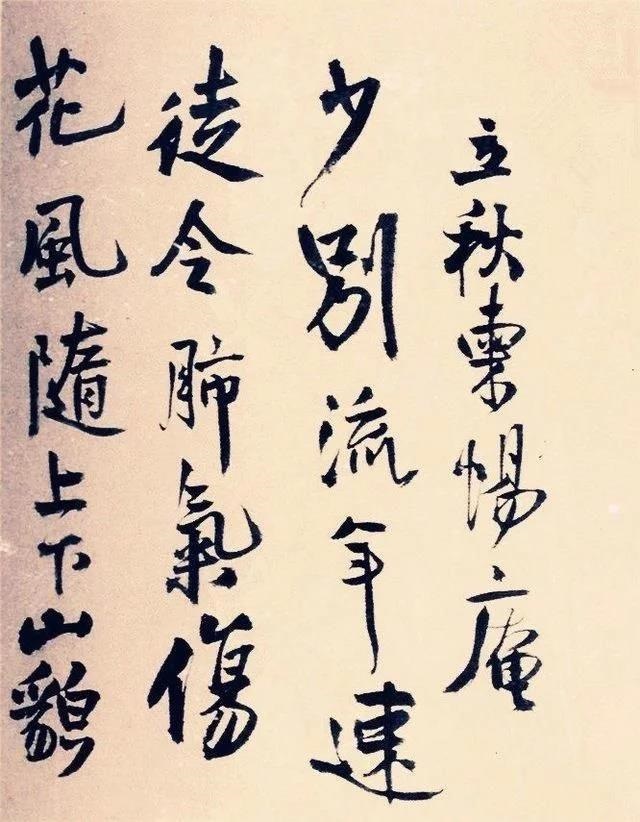 立秋柬惕庵
少別流年速
徒令肺氣傷
花風隨上下山貌